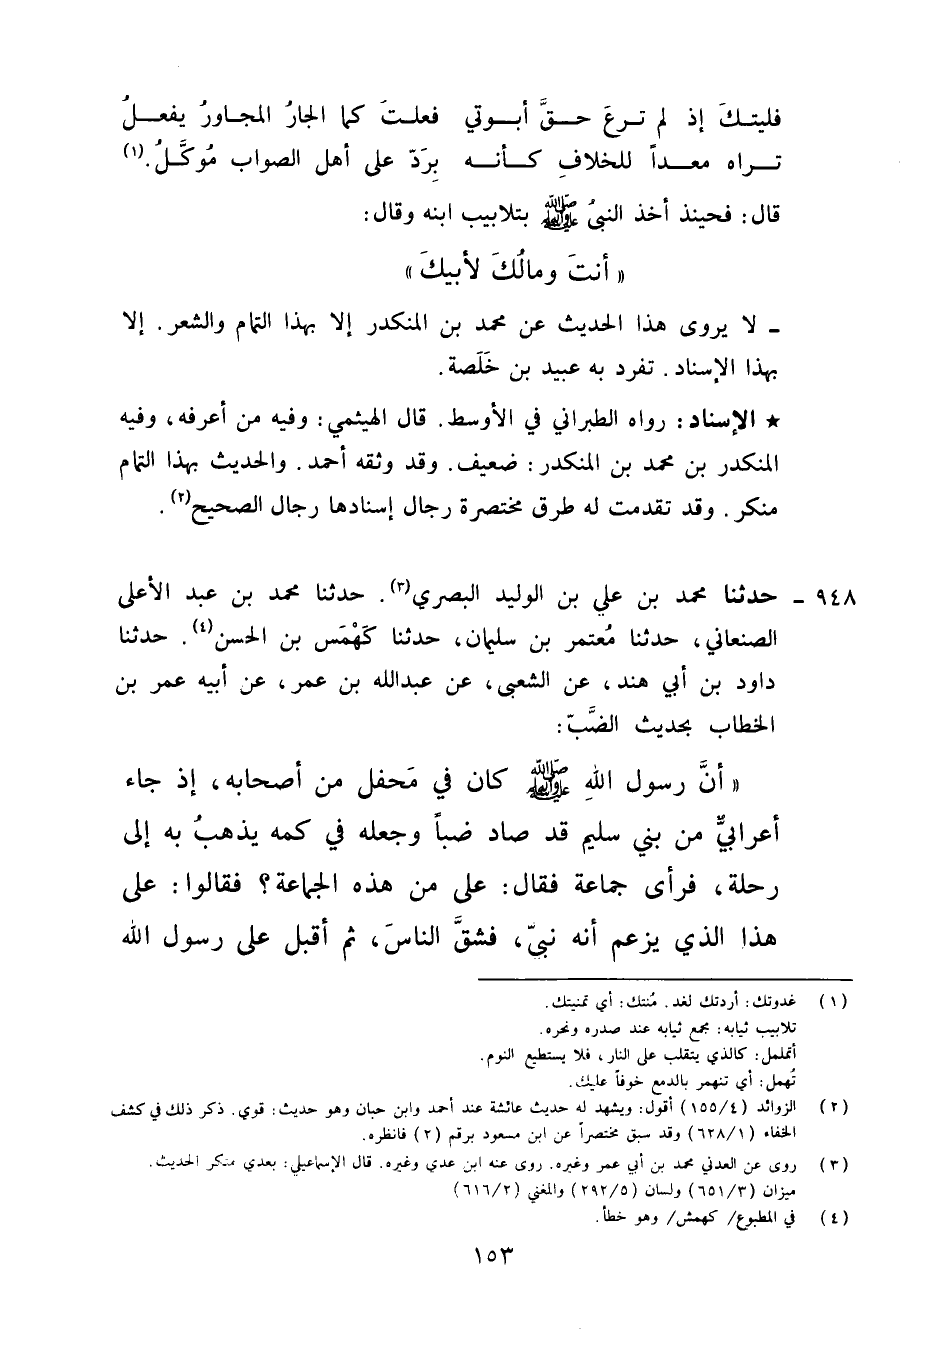 فليتـكَ إذ لم تـرعَ حـقَّ أبـوتي فعلتَ كما الجارُ المجـاورُ يفعـلُ
تـراه معـداً للخلافِ كـأنـه بِرَدّ على أهل الصواب مُوكَّلُ.(١)
قال: فحينئذ أخذ النبيُ ﷺ بتلابيب ابنه وقال:
« أنتَ ومالُكَ لأبيكَ »
ـ لا يروى هذا الحديث عن محمد بن المنكدر إلا بهذا التمام والشعر. إلا
بهذا الإسناد. تفرد به عبيد بن خَلَصة.
★ الإسناد: رواه الطبراني في الأوسط. قال الهيثمي: وفيه من أعرفه، وفيه
المنكدر بن محمد بن المنكدر: ضعيف. وقد وثقه أحمد. والحديث بهذا التمام
منكر. وقد تقدمت له طرق مختصرة رجال إسنادها رجال الصحيح(٢).
٩٤٨ ـ حدثنا محمد بن علي بن الوليد البصري(٣). حدثنا محمد بن عبد الأعلى
الصنعاني، حدثنا مُعتمر بن سليمان، حدثنا كَهْمَس بن الحسن(٤). حدثنا
داود بن أبي هند، عن الشعبي، عن عبدالله بن عمر، عن أبيه عمر بن
الخطاب بحديث الضَّبّ:
« أنَّ رسول اللهِ ﷺ كان في مَحفل من أصحابه، إذ جاء
أعرابيٌّ من بني سليم قد صاد ضباً وجعله في كمه يذهبُ به إلى
رحلة، فرأى جماعة فقال: على من هذه الجماعة؟ فقالوا: على
هذا الذي يزعم أنه نبيّ، فشقَّ الناسَ، ثم أقبل على رسول الله
(١) غدوتك: أردتك لغد. مُنتك: أي تمنيتك.
تلابيب ثيابه: بجمع ثيابه عند صدره ونحره.
أتململ: كالذي يتقلب على النار، فلا يستطيع النوم.
تُهمل: أي تنهمر بالدمع خوفاً عليك.
(٢) الزوائد (١٥٥/٤) أقول: ويشهد له حديث عائشة عند أحمد وابن حبان وهو حديث: قوي. ذكر ذلك في كشف
الخفاء (٦٢٨/١) وقد سبق مختصراً عن ابن مسعود برقم (٢) فانظره.
(٣) روى عن العدني محمد بن أبي عمر وغيره. روى عنه ابن عدي وغيره. قال الإسماعيلي: بعدي منكر الحديث.
ميزان (٦٥١/٣) ولسان (٢٩٢/٥) والمغني (٦١٦/٢)
(٤) في المطبوع/ كهمش/ وهو خطأ.
١٥٣